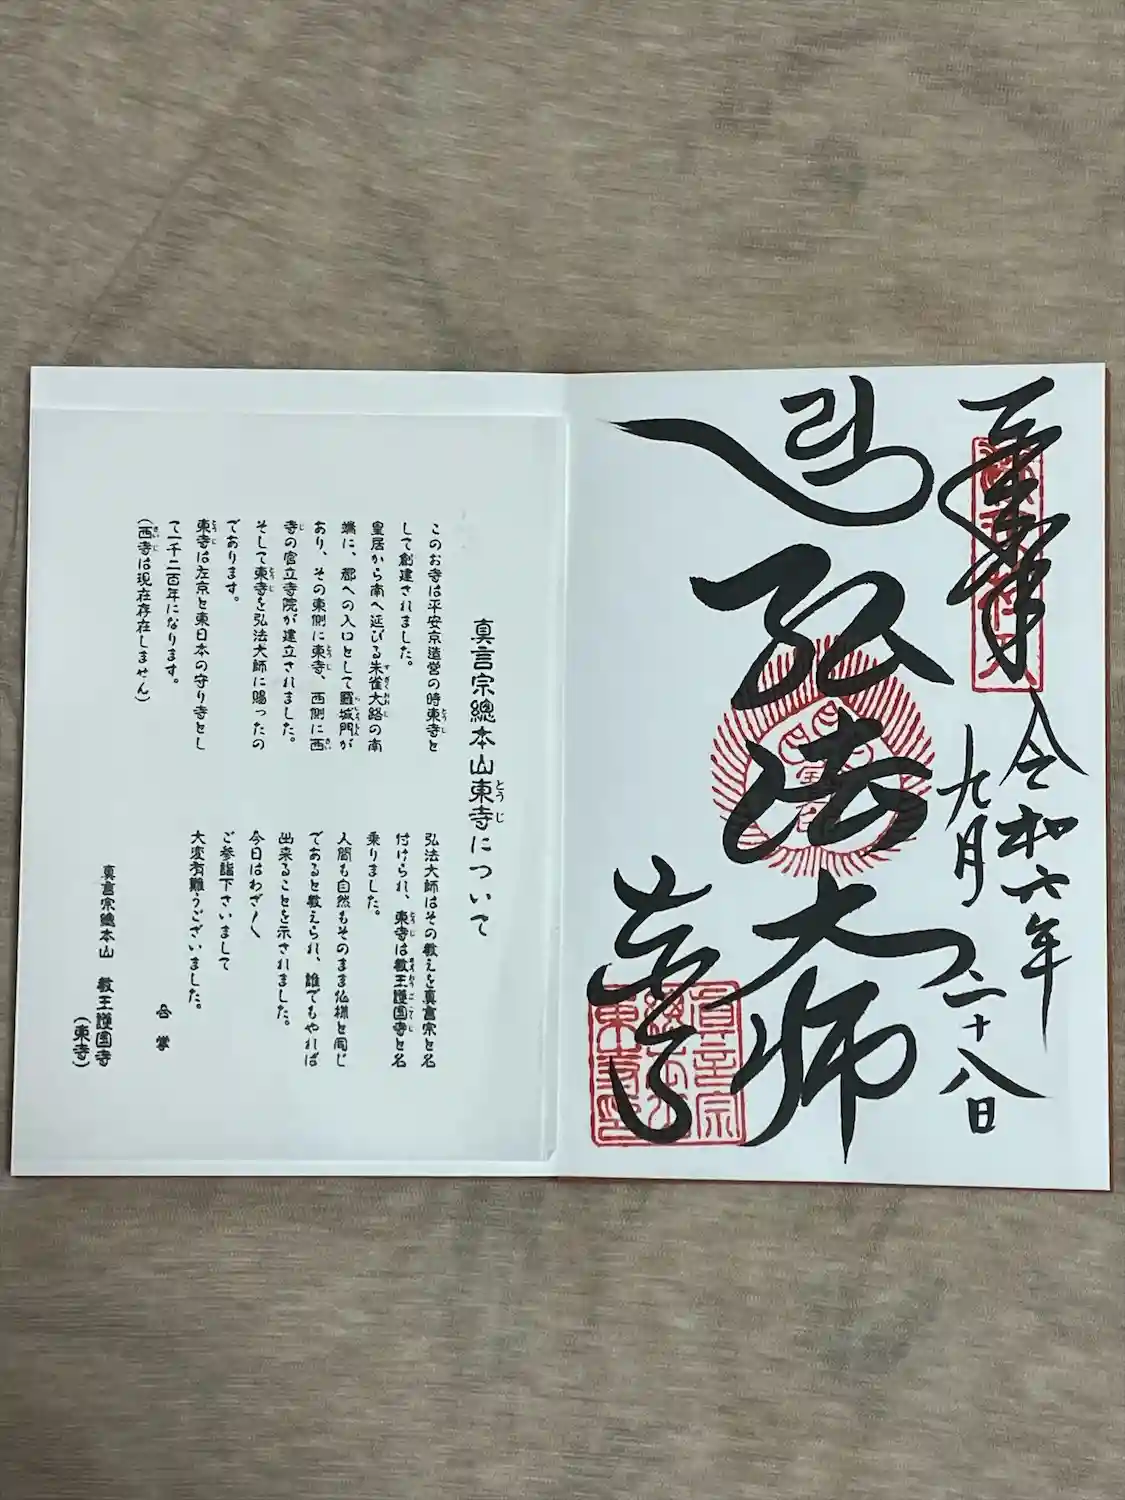 奉拝
令和六年
九月二十八日
弘法大師
東寺
真言宗總本山東寺について
とうじ
このお寺は平安京造営の時東寺と
して創建されました。
皇居から南へ延びる朱雀大路の南
端に、都への入口として羅城門が
あり、その東側に東寺、西側に西
寺の官立寺院が建立されました。
そして東寺を弘法大師に賜ったの
であります。
東寺は左京と東日本の守り寺とし
て一千二百年になります。
(西寺は現在存在しません)
弘法大師はその教えを真言宗と名
付けられ、東寺は教王護国寺と名
乗りました。
人間も自然もそのまま仏様と同じ
であると教えられ、誰でもやれば
出来ることを示されました。
今日はわざ〳〵
ご参詣下さいまして
大変有難うございました。
合掌
真言宗總本山 教王護国寺
(東寺)